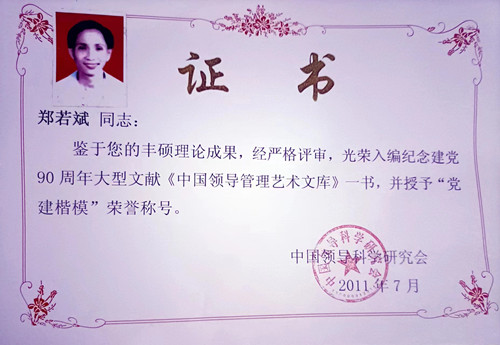 证 书
郑若斌 同志：
鉴于您的丰硕理论成果，经严格评审，光荣入编纪念建党
90周年大型文献《中国领导管理艺术文库》一书，并授予“党
建楷模”荣誉称号。
中国领导科学研究会
2011年7月